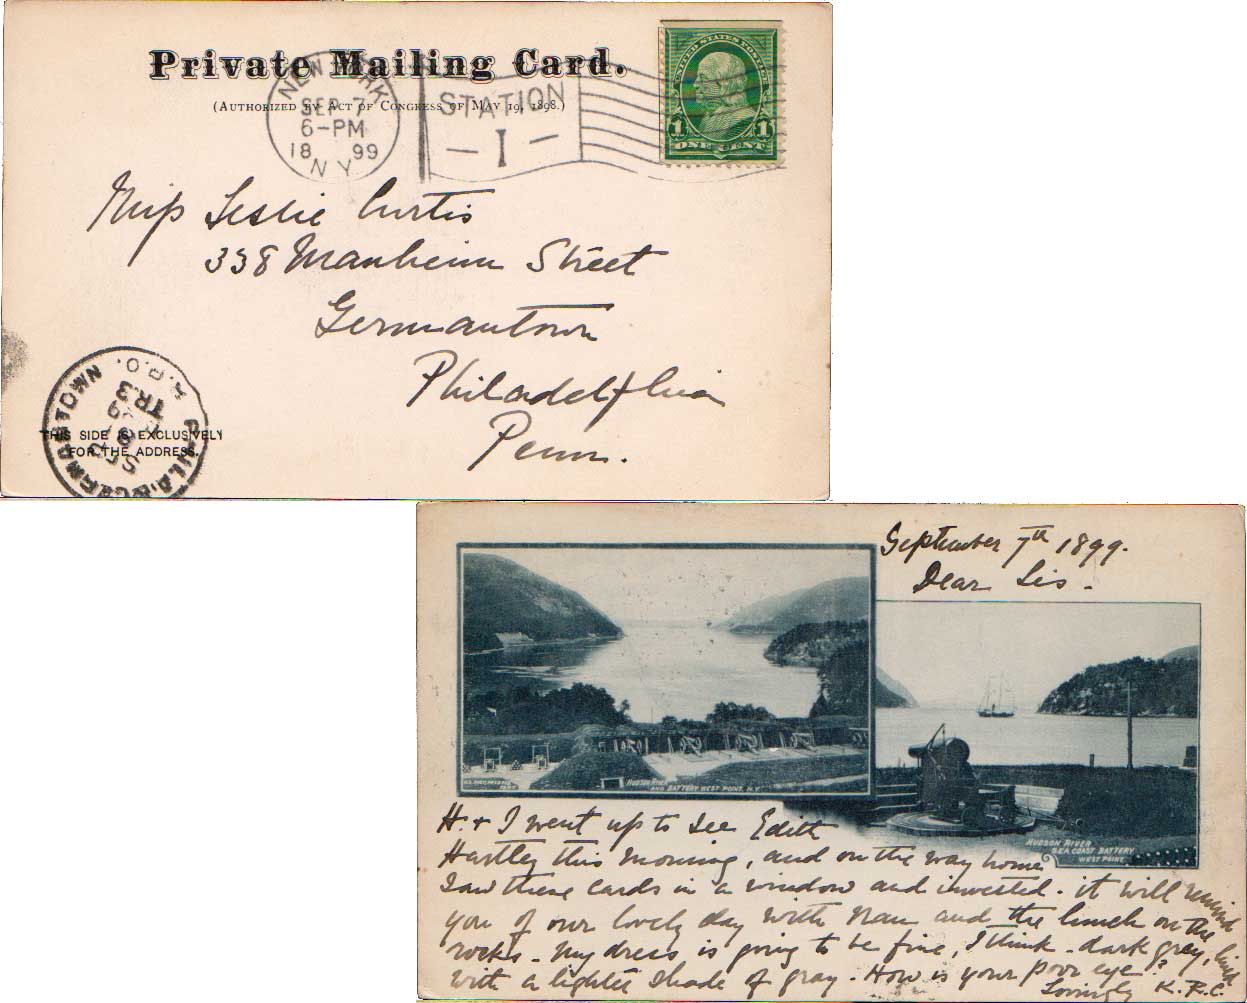 Private Mailing Card.
(Authorized by Act of Congress of May 19, 1898.)
NEW YORK
SEP 7
6-PM
18 99
N Y
STATION
- I -
UNITED STATES POSTAGE
1 1
ONE CENT
Miss Leslie Curtis
338 Manheim Street
Germantown
Philadelphia
Penn.
PHILA. GERMANTOWN
TR.3
THIS SIDE IS EXCLUSIVELY
FOR THE ADDRESS.
September 7th 1899.
Dear Sis -
HUDSON RIVER
AND BATTERY WEST POINT, N.Y.
HUDSON RIVER
SEA COAST BATTERY
WEST POINT
H. & I went up to see Edith
Hartley this morning, and on the way home
saw these cards in a window and invested. it will remind
you of our lovely day with Nan and the lunch on the
rocks - My dress is going to be fine, I think - dark grey, lined
with a lighter shade of gray. How is your poor eye?
Lovingly K.R.C.